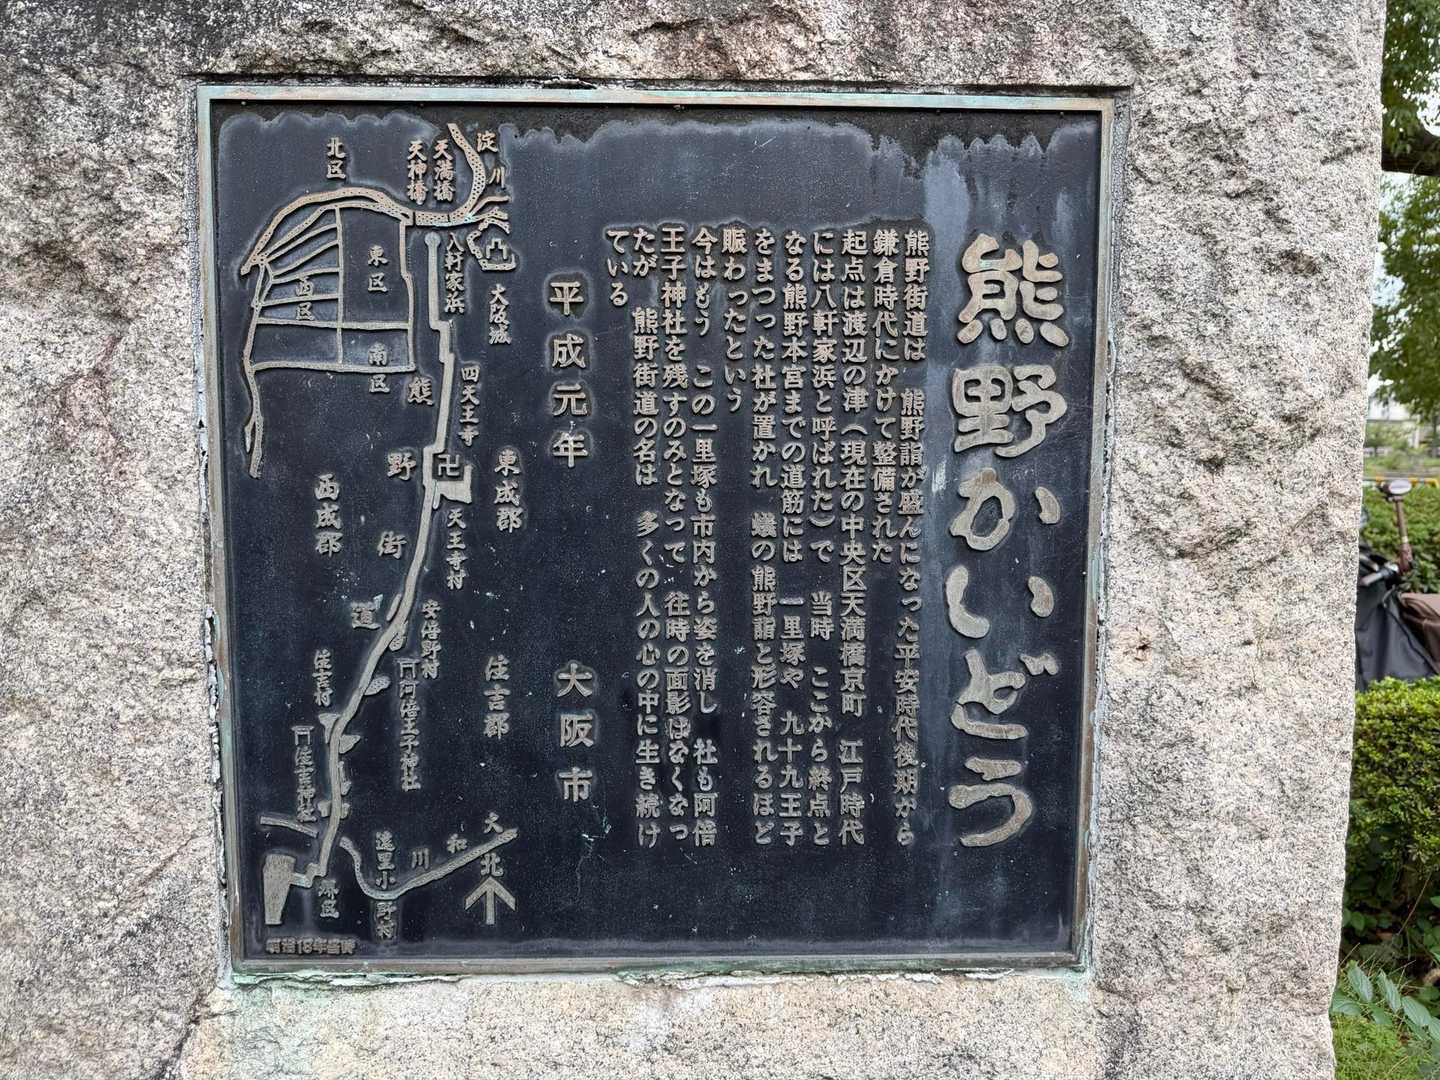 熊野かいどう
熊野街道は　熊野詣が盛んになった平安時代後期から
鎌倉時代にかけて整備された
起点は渡辺の津（現在の中央区天満橋京町　江戸時代
には八軒家浜と呼ばれた）で　当時　ここから終点と
なる熊野本宮までの道筋には　一里塚や　九十九王子
をまつった社が置かれ　蟻の熊野詣と形容されるほど
賑わったという
今はもう　この一里塚も市内から姿を消し　社も阿倍
王子神社を残すのみとなって　往時の面影はなくなっ
たが　熊野街道の名は　多くの人の心の中に生き続け
ている
平成元年　大阪市
淀川
天満橋
天神橋
北区
八軒家浜
大阪城
東区
西区
南区
四天王寺
熊野街道
卍
東成郡
西成郡
天王寺村
安倍野村
阿倍王子神社
住吉郡
住吉村
住吉神社
大和川
遠里小野村
堺区
北
明治18年当時